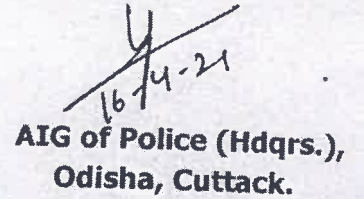 16-4-21
AIG of Police (Hdqrs.),
Odisha, Cuttack.